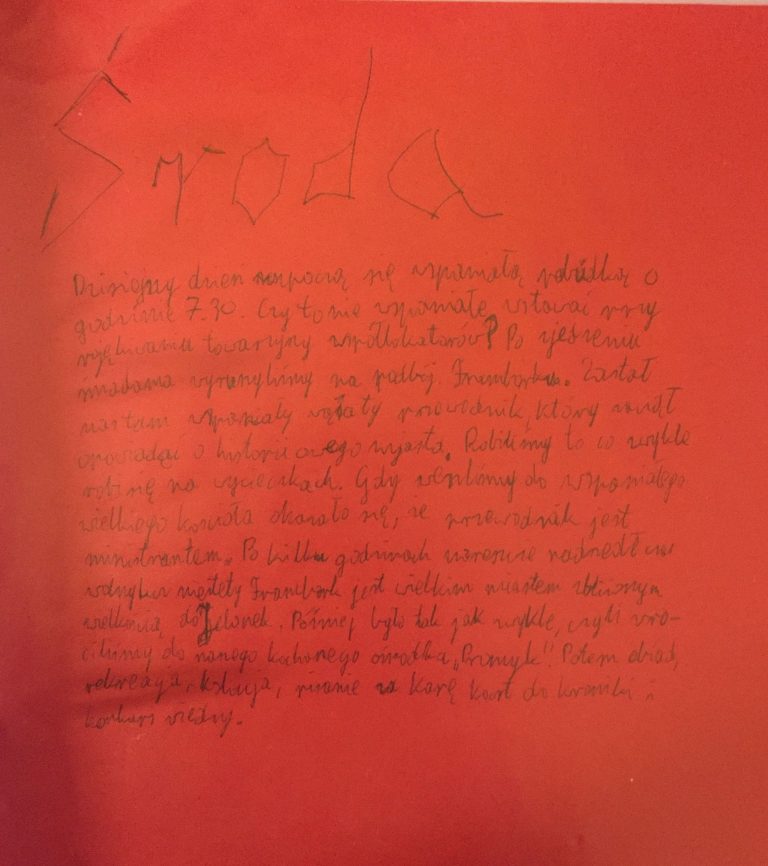 Środa
Dzisiejszy dzień rozpoczą się wspaniałą pobudką o
godzinie 7.30. Czy to nie wspaniałe wstawać przy
towarzyszy współlokatorów? Po zjedzeniu
śniadania wyruszyliśmy na podbój Fromborka. Zastał
nas tam wspaniały przewodnik, który zaczął
opowiadać o historii owego miasta. Robiliśmy to co zwykle
robi się na wycieczkach. Gdy weszliśmy do wspaniałego
wielkiego kościoła okazało się, że przewodnik jest
ministrantem. Po kilku godzinach nareszcie nadszedł czas
niestety Frombork jest wielkim miastem
wielkością do Jelonek. Później było tak jak zwykle, czyli wró-
ciliśmy do naszego kochanego ośrodka „Promyk". Potem obiad,
rekreacja, kolacja, pisanie za karę kart do kroniki i
konkurs wiedzy.